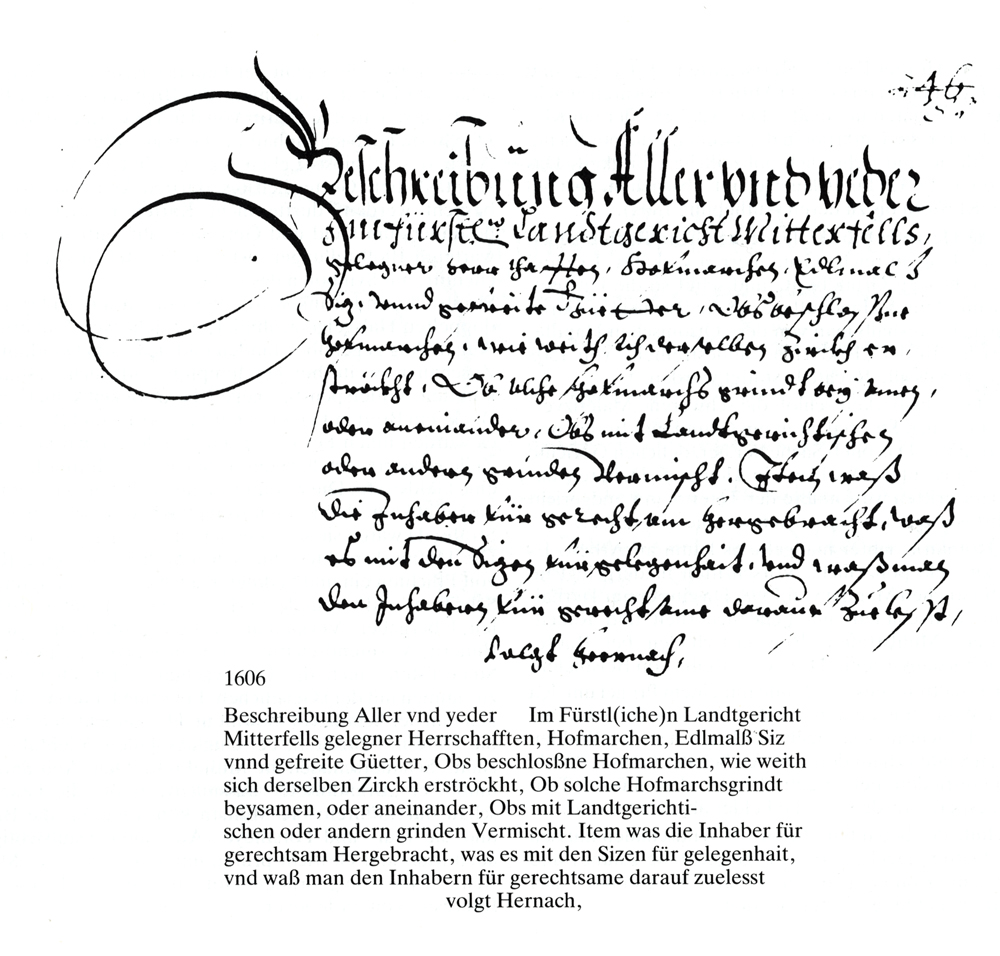 46
Beschreibung Aller vnd yeder
Im fürstl: Landtgericht Mitterfells,
gelegner herrschafften, Hofmarchen, Edlmalß
Siz, vnnd gefreite Güetter, Obs beschloßne
Hofmarchen, wie weith sich derselben Zirckh er,
ströckht, Ob solche Hofmarchs grindt beysamen,
oder aneinander, Obs mit Landtgerichtischen
oder andern grinden Vermischt. Item waß
die Inhaber für gerechtsam Hergebracht, waß
es mit den Sizen für gelegenhait, vnd waß man
den Inhabern für gerechtsame darauf Zuelesst,
volgt Hernach,
1606
Beschreibung Aller vnd yeder Im Fürstl(iche)n Landtgericht
Mitterfells gelegner Herrschafften, Hofmarchen, Edlmalß Siz
vnnd gefreite Güetter, Obs beschlosßne Hofmarchen, wie weith
sich derselben Zirckh erströckht, Ob solche Hofmarchsgrindt
beysamen, oder aneinander, Obs mit Landtgerichti-
schen oder andern grinden Vermischt. Item was die Inhaber für
gerechtsam Hergebracht, was es mit den Sizen für gelegenhait,
vnd waß man den Inhabern für gerechtsame darauf zuelesst
volgt Hernach,